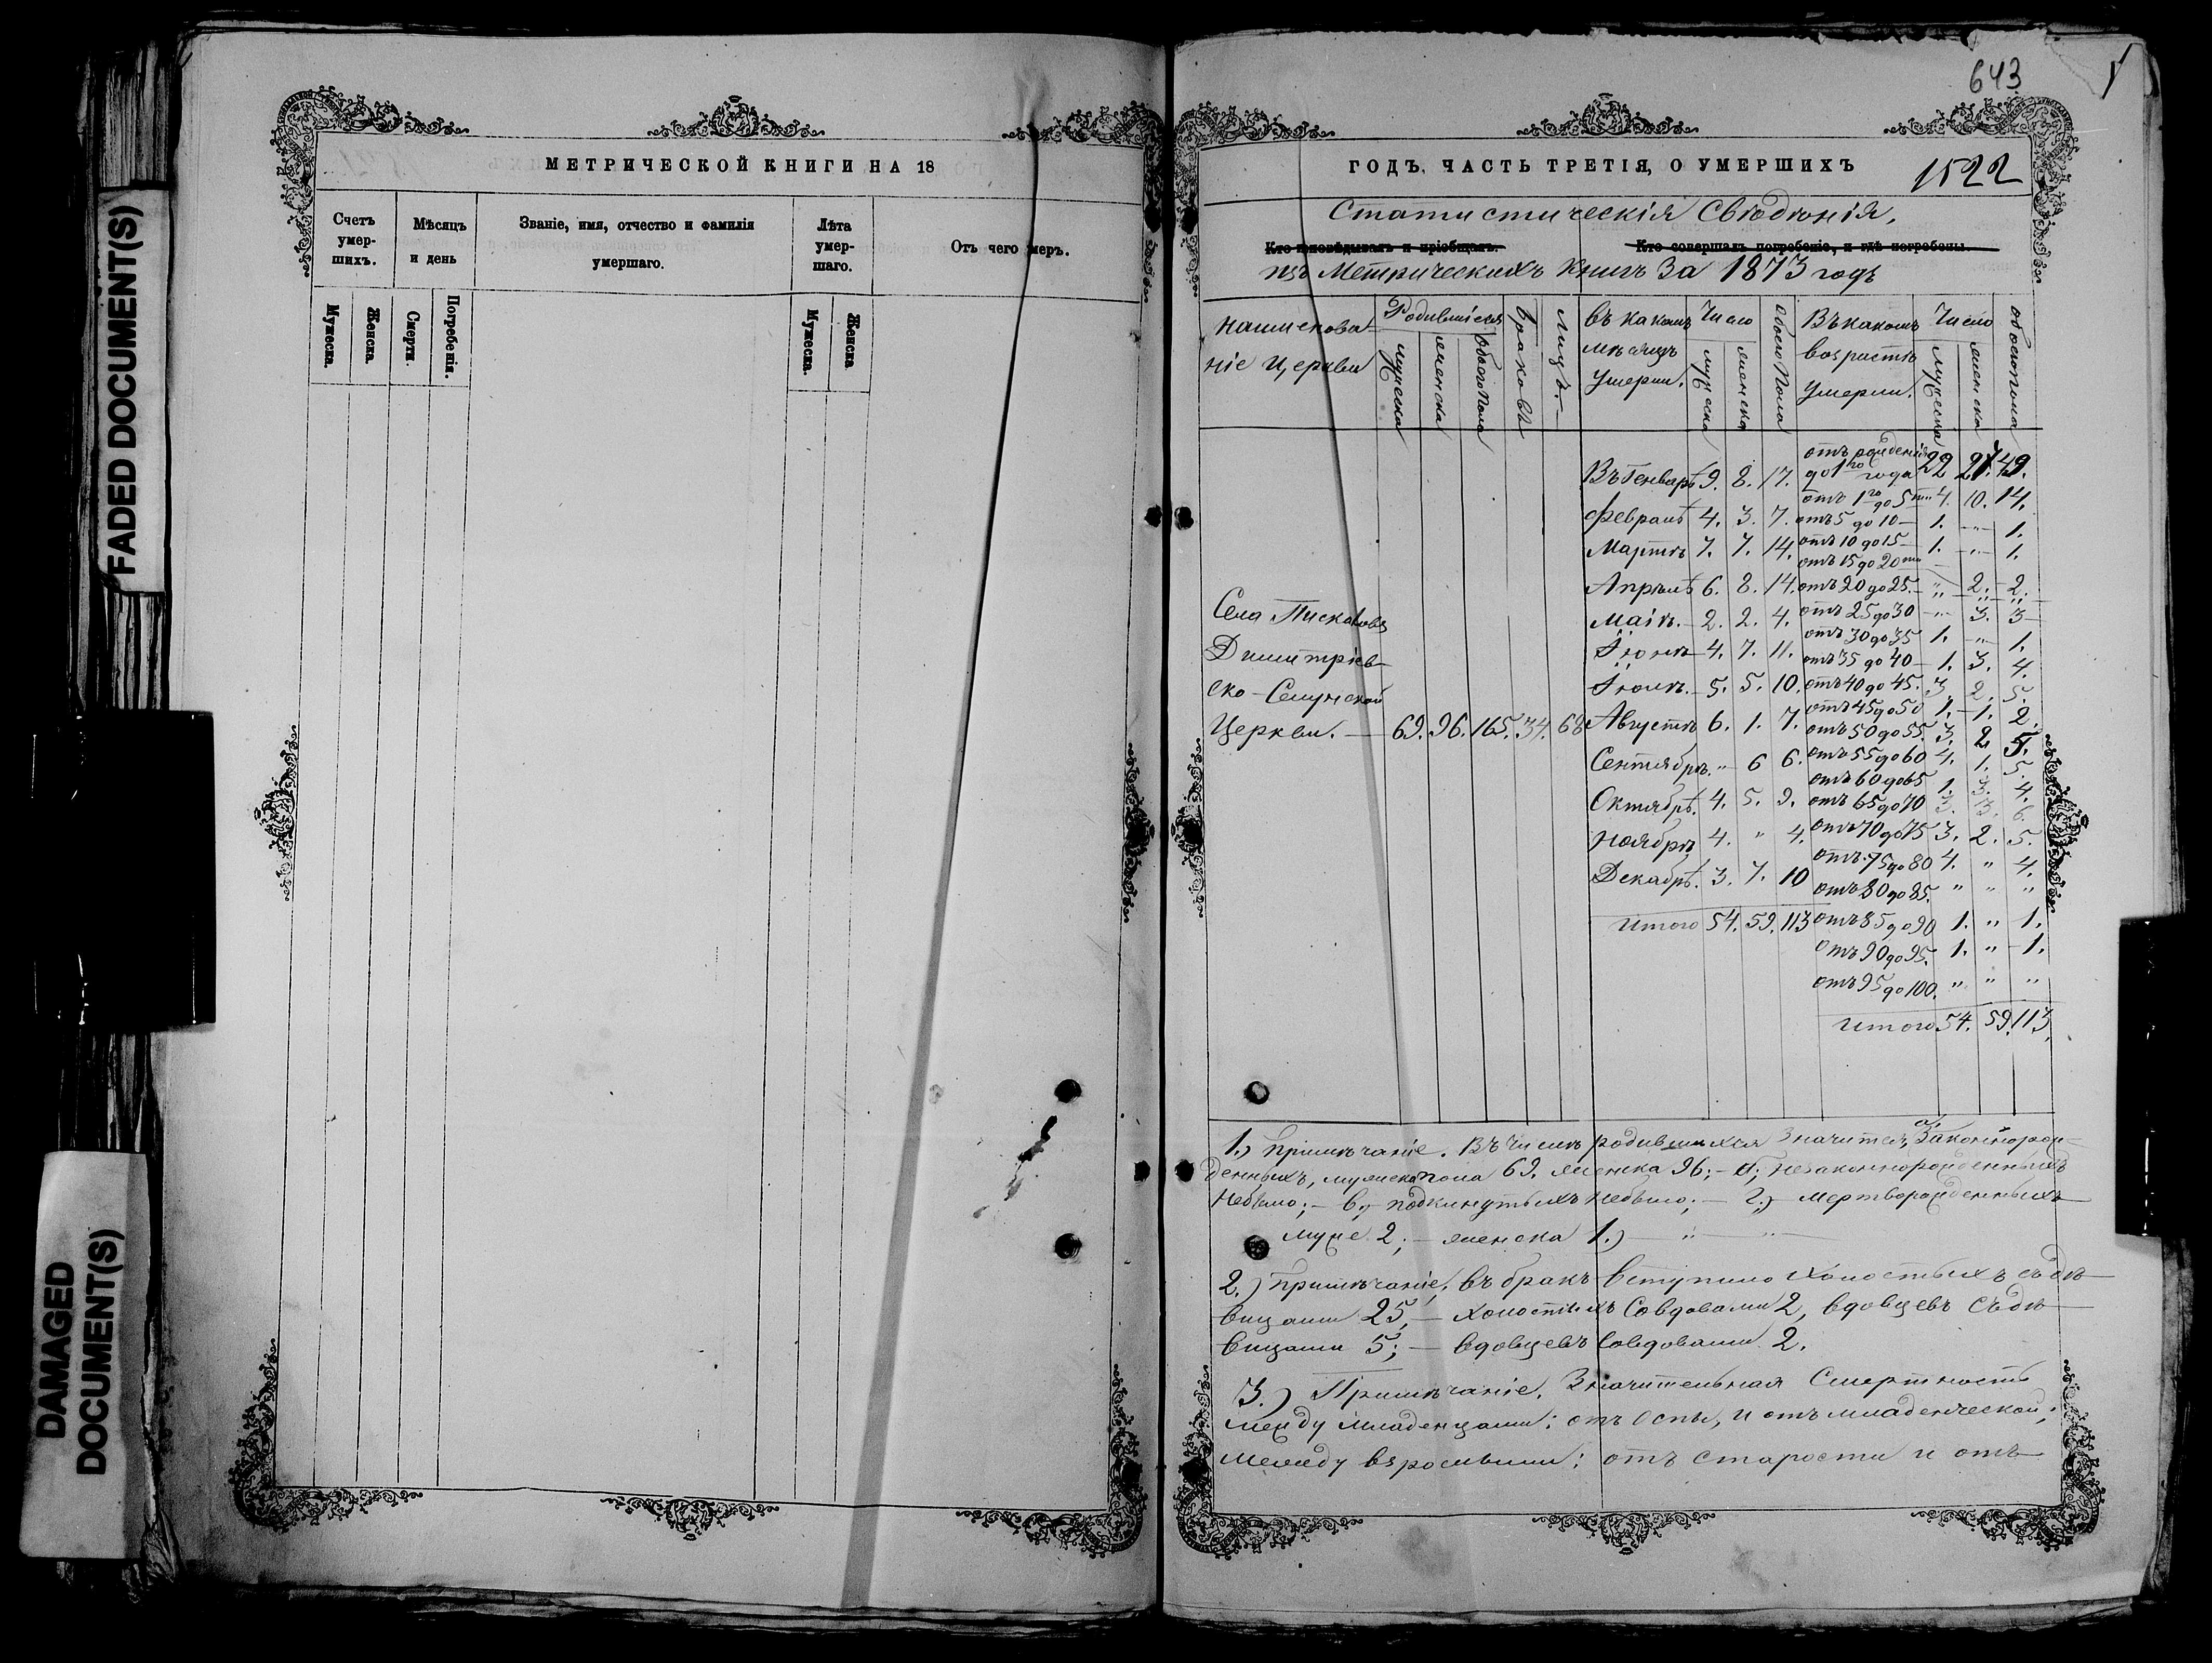 643
FADED DOCUMENT(S)
DAMAGED
DOCUMENT(S)
МЕТРИЧЕСКОЙ КНИГИ НА 18
Счетъ умер-шихъ.
Мѣсяцъ и день
Званіе, имя, отчество и фамилія умершаго.
Лѣта умер-шаго.
Отъ чего умеръ.
Мужеска. Женска. Смерти. Погребенія. Мужеска. Женска
ГОДЪ, ЧАСТЬ ТРЕТІЯ, О УМЕРШИХЪ
1522
Статистическія Свѣдѣнія,
Кто исповѣдывалъ и пріобщалъ. Кто совершалъ погребеніе, и гдѣ погребены.
изъ Метрическихъ Книгъ за 1873 годъ
Наименова-
ніе Церкви
Родившіеся
мужеска женска обоего пола
Браковъ
Лицъ.
Въ какомъ
мѣсяцѣ
Умерли.
Число
мужеска женска
обоего пола
Въ какомъ
возрастѣ
Умерли.
Число
мужеска женска
обоего пола
Села
Димитріев-
ско-Селунской
Церкви. — 69. 96. 165. 34. 68
Въ Генварѣ 9. 8. 17.
Февралѣ 4. 3. 7.
Мартѣ 7. 7. 14.
Апрѣлѣ 6. 8. 14.
Маіѣ. 2. 2. 4.
Іюнѣ 4. 7. 11.
Іюлѣ. 5. 5. 10.
Августѣ 6. 1. 7.
Сентябрѣ. " 6 6.
Октябрѣ. 4. 5. 9.
Ноябрѣ 4. " 4.
Декабрѣ. 3. 7. 10
Итого 54. 59. 113
отъ рожденія
до 1го года 22 27. 49.
отъ 1го до 5ти 4. 10. 14.
отъ 5 до 10 — 1. — " — 1.
отъ 10 до 15 — 1. — " — 1.
отъ 15 до 20ти
отъ 20 до 25. " 2. 2.
отъ 25 до 30 — " 3. 3
отъ 30 до 35 1. — " — 1.
отъ 35 до 40 — 1. 3. 4.
отъ 40 до 45. 3. 2. 5.
отъ 45 до 50 1. 1. 2.
отъ 50 до 55. 3. 2 5.
отъ 55 до 60 4. 1. 5.
отъ 60 до 65 1. 3. 4.
отъ 65 до 70 3. 3. 6.
отъ 70 до 75 3. 2. 5.
отъ 75 до 80 4. " 4.
отъ 80 до 85. " " "
отъ 85 до 90 1. " 1.
отъ 90 до 95. 1. " 1.
отъ 95 до 100. " " "
Итого 54. 59. 113.
1.) Примѣчаніе. Въ числѣ родившихся значится, а; Законнорож-
денныхъ, мужеска пола 69. женска 96; — б; незаконнорожденныхъ
Небыло; — в; подкинутыхъ небыло; — г;) мертворожденныхъ
муже. 2; — женска 1.) — " — " —
2.) Примѣчаніе, въ бракъ вступило холостыхъ съ дѣ-
вицами 25, — холостыхъ со вдовами 2, вдовцевъ съ дѣ-
вицами 5; — вдовцевъ со вдовами 2.
3.) Примѣчаніе. Значительная Смертность
между младенцами: отъ оспы, и отъ младенческой;
между взрослыми: отъ старости и отъ